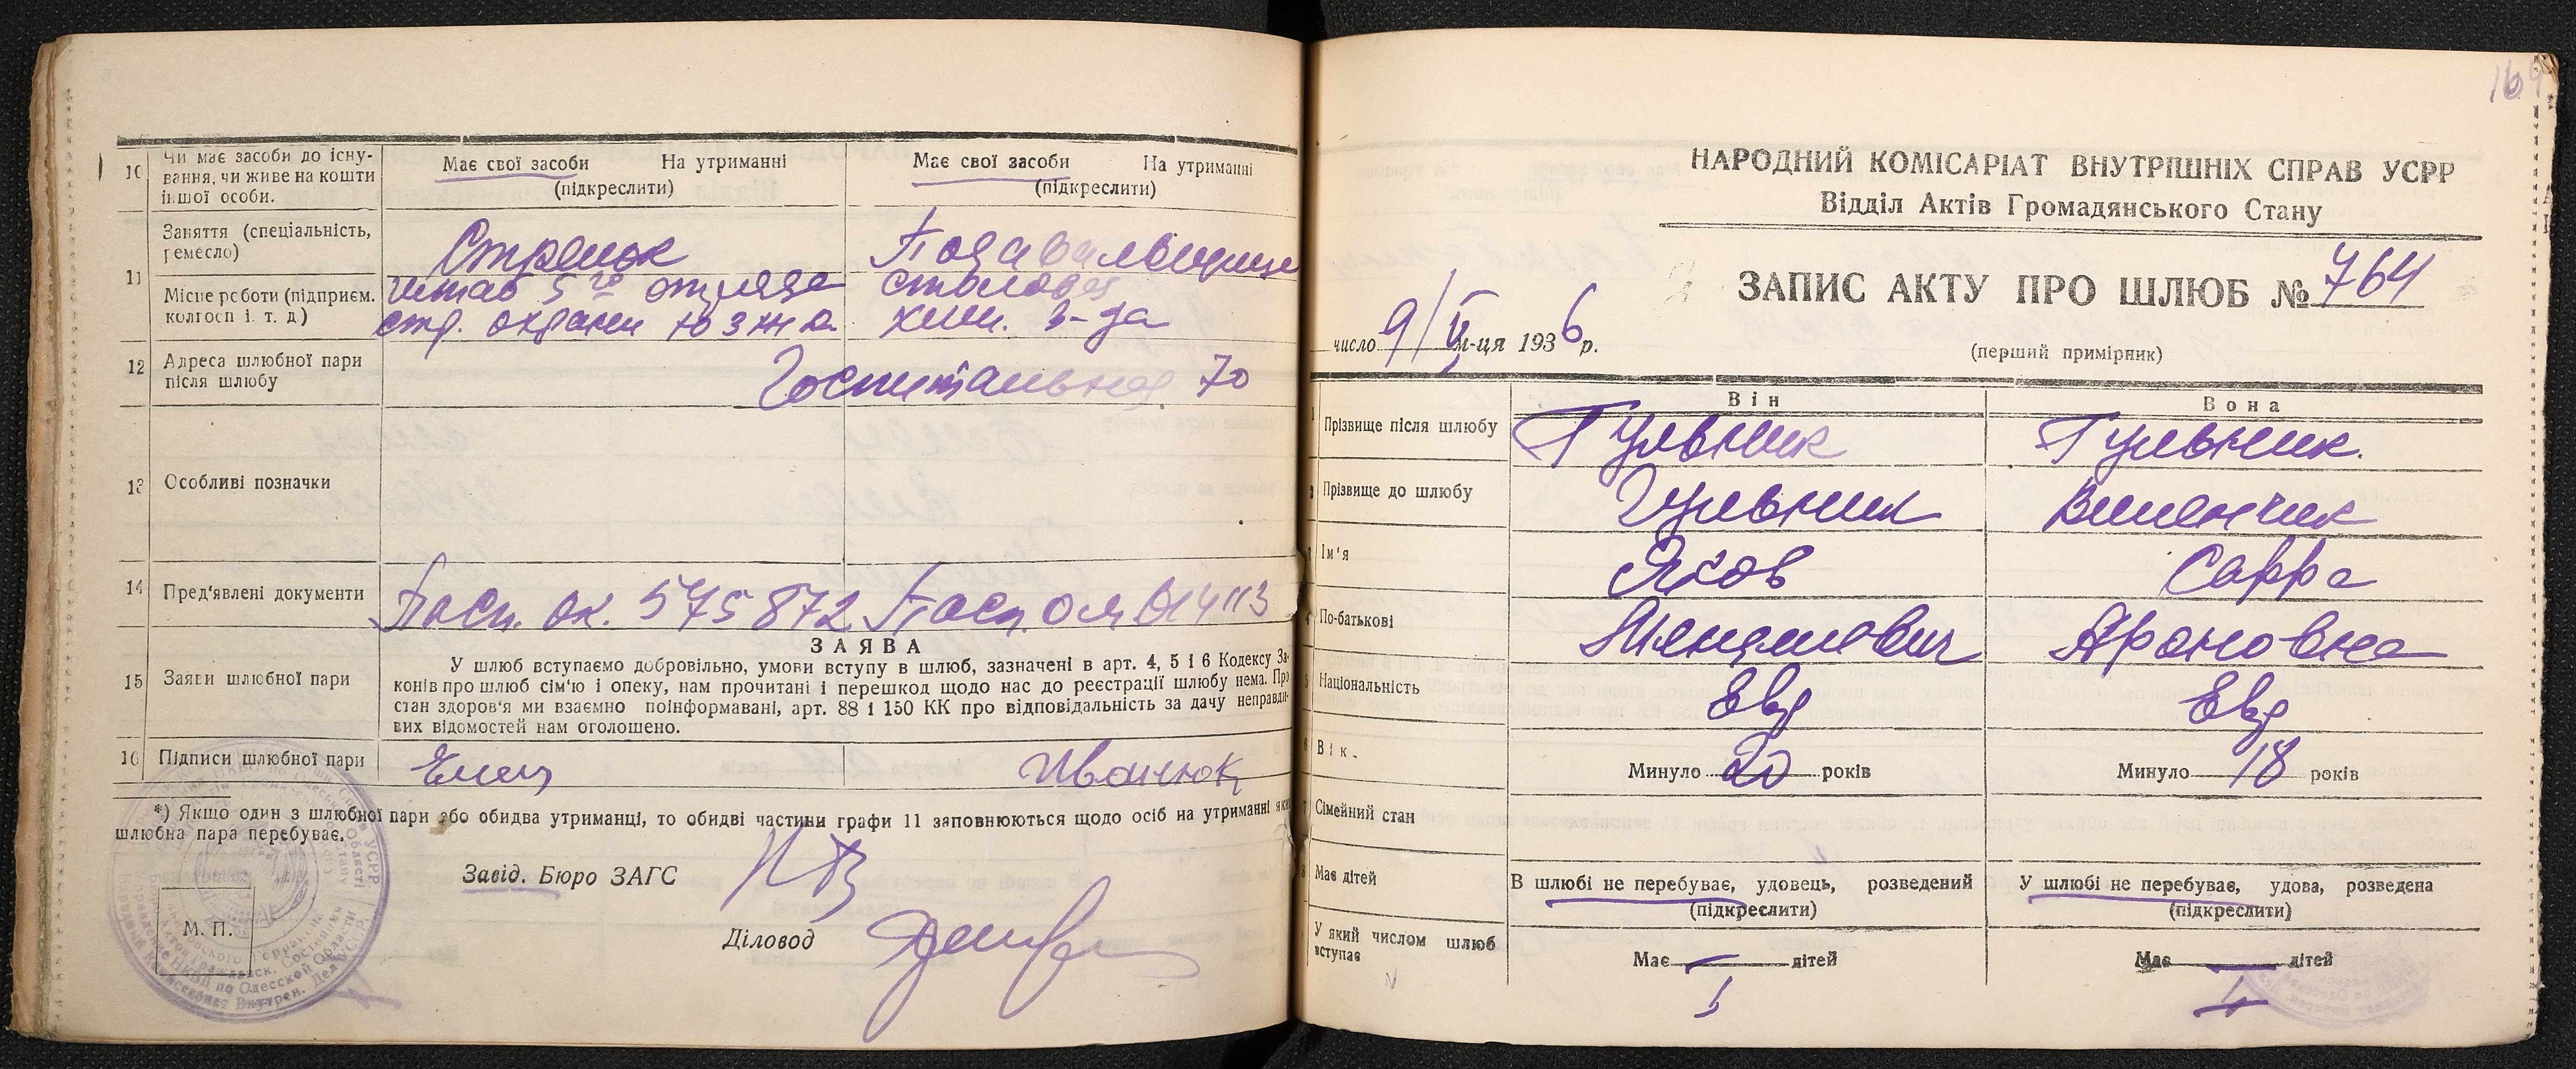 10 Чи має засоби до існу-
вання, чи живе на кошти
іншої особи.
Має свої засоби На утриманні
(підкреслити)
Має свої засоби На утриманні
(підкреслити)
11 Заняття (спеціальність,
ремесло)
Стрелок
Подавальщица
Місце роботи (підприєм.
колгосп і. т. д)
Штаб 5го отряда
стр. охраны ЮЗжд.
столовая
хим. з-да
12 Адреса шлюбної пари
після шлюбу
Госпитальная 70
13 Особливі позначки
14 Пред'явлені документи
Пасп. ОК. 575872
Пасп. ОЯ 014113
ЗАЯВА
15 Заяви шлюбної пари
У шлюб вступаємо добровільно, умови вступу в шлюб, зазначені в арт. 4, 5 і 6 Кодексу За-
конів про шлюб сім'ю і опеку, нам прочитані і перешкод щодо нас до реєстрації шлюбу нема. Про
стан здоров'я ми взаємно поінформавані, арт. 88 і 150 КК про відповідальність за дачу неправди-
вих відомостей нам оголошено.
16 Підписи шлюбної пари
*) Якщо один з шлюбної пари або обидва утриманці, то обидві частини графи 11 заповнюються щодо осіб на утриманні яких
шлюбна пара перебуває.
Завід. Бюро ЗАГС
Діловод
М. П.
НАРОДНИЙ КОМІСАРІАТ ВНУТРІШНІХ СПРАВ УСРР
Відділ Актів Громадянського Стану
ЗАПИС АКТУ ПРО ШЛЮБ № 764
число 9/VI м-ця 1936 р.
(перший примірник)
Він
Вона
Прізвище після шлюбу
Гульник
Гульник.
Прізвище до шлюбу
Гульник
Виленчик
Ім'я
Яков
Сарра
По-батькові
Менделевич
Ароновна
Національність
Евр
Евр
Вік.
Минуло 20 років
Минуло 18 років
Сімейний стан
В шлюбі не перебуває, удовець, розведений
(підкреслити)
У шлюбі не перебуває, удова, розведена
(підкреслити)
Має дітей
Має — дітей
Має — дітей
У який числом шлюб
вступає
I
I